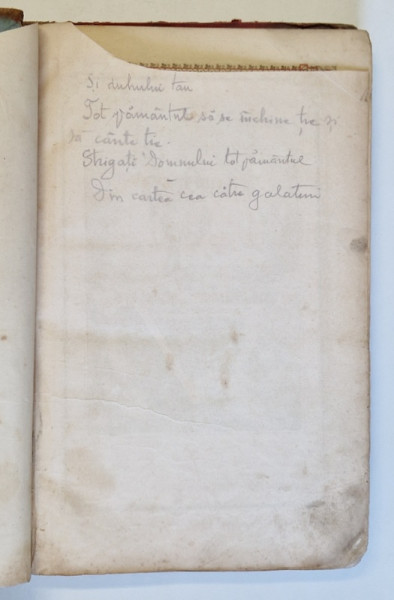 Și duhului tau
Tot pământul să se închine ție și
să cânte ție.
Strigați Domnului tot pământul
Din cartea cea către galateni